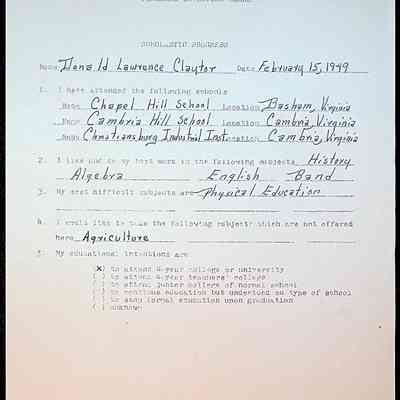 SCHOLASTIC PROGRESS
Name Donald Lawrence Claytor Date February 15, 1949
1. I have attended the following schools
Name Chapel Hill School Location Basham, Virginia
Name Cambria Hill School Location Cambria, Virginia
Name Christiansburg Industrial Inst. Location Cambria, Virginia
2. I like and do my best work in the following subjects History
Algebra English Band
3. My most difficult subjects are Physical Education
4. I would like to take the following subject which are not offered
here Agriculture
5. My educational intentions are
(X) to attend 4-year college or university
( ) to attend 4-year teachers' college
( ) to attend junior college of normal school
( ) to continue education but undecided on type of school
( ) to stop formal education upon graduation
( ) unknown